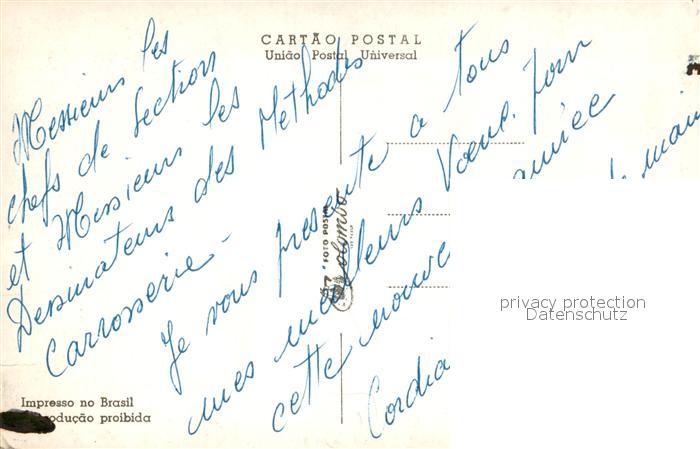 CARTÃO POSTAL
União Postal Universal
Messieurs les
chefs de Section
et Messieurs les
Dessinateurs des Methodes
Carrosserie -
Je vous presente a tous
mes meilleurs Voeux. Pour
cette nouve
année
Cordia
main
"FOTO POSTAL
Colombo
privacy protection
Datenschutz
Impresso no Brasil
odução proibida